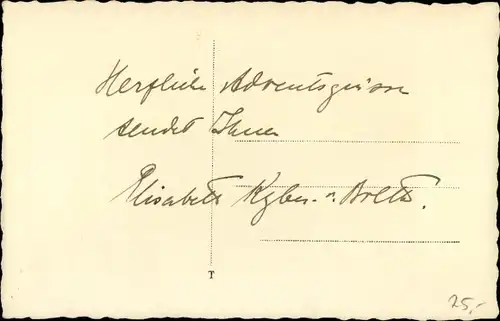 Herzliche Adventsgrüsse
sendet Ihnen
Elisabeth Kyber-v. Boltho.
T
25,-